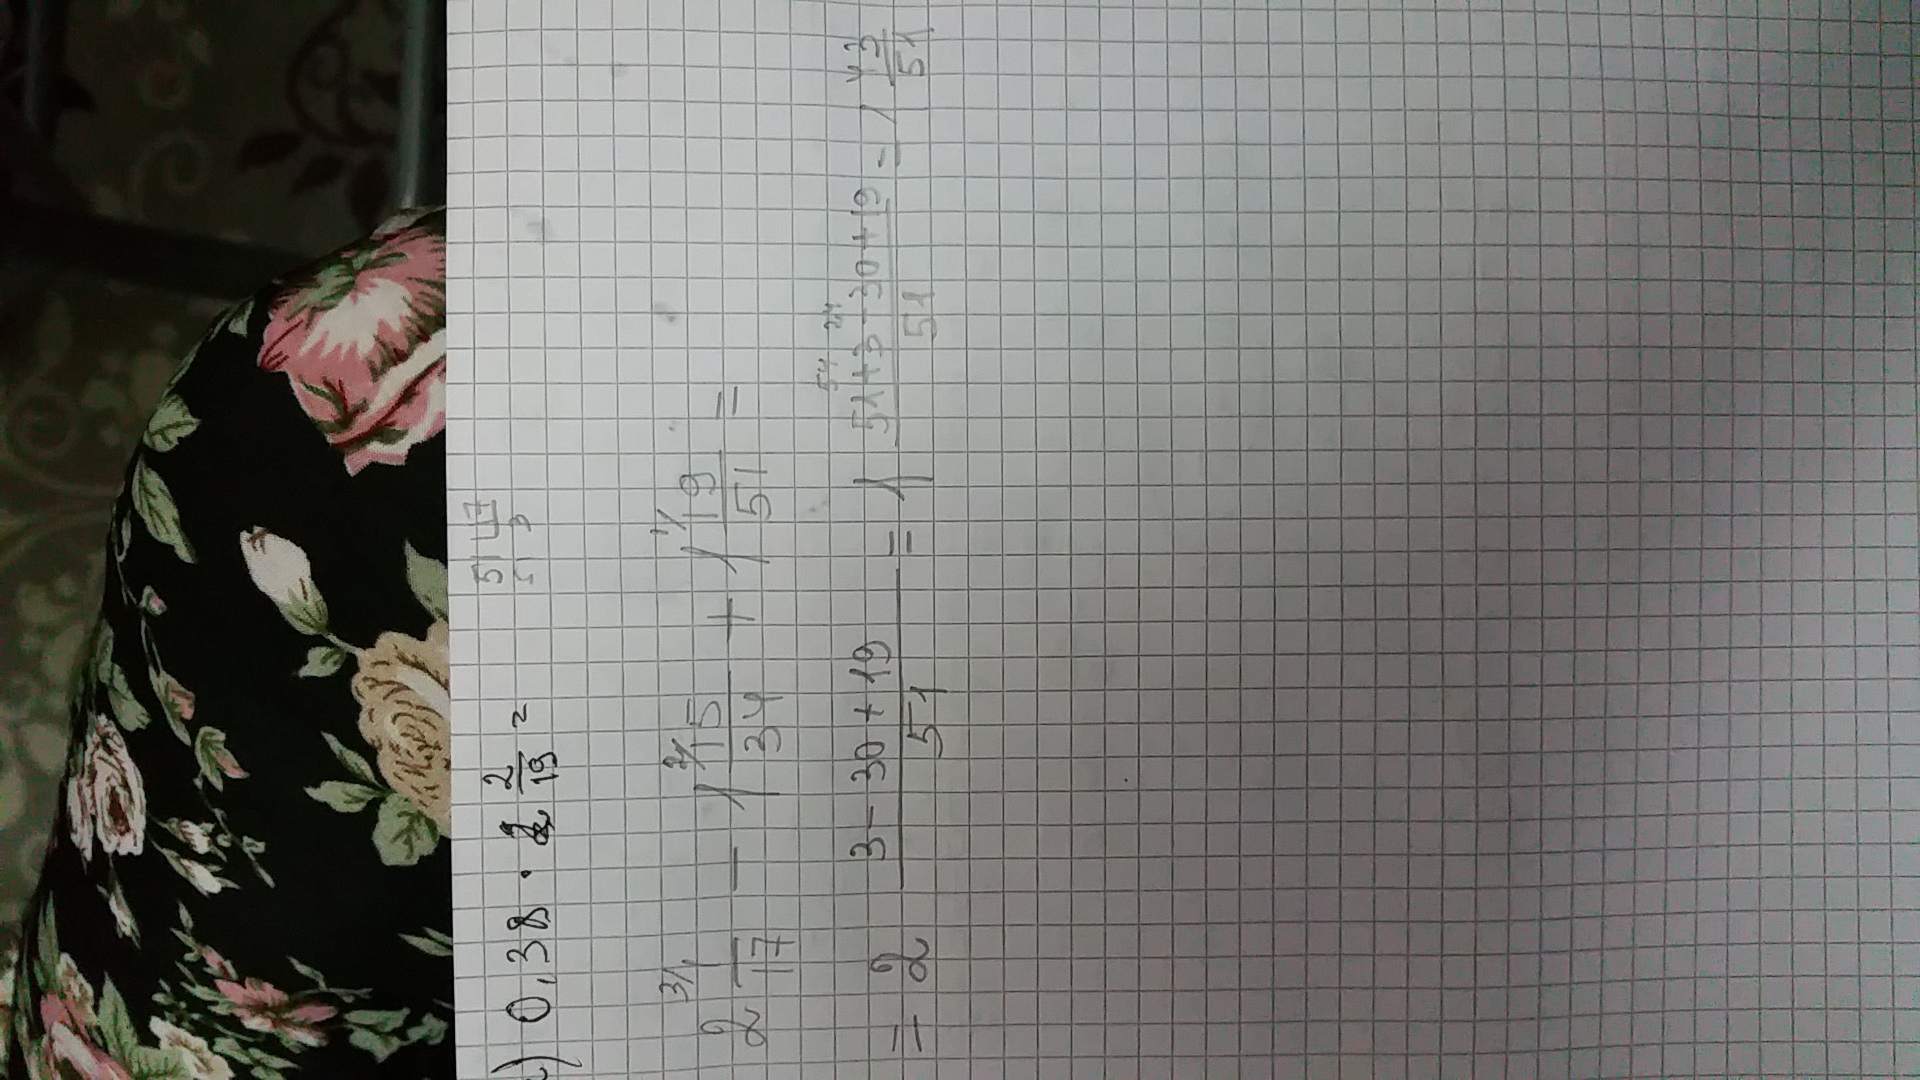 ) 0,38 · 2/19 =
51 | 17
51 3
2 3/ 1/17 - 1 2/ 15/34 + 1 1/ 19/51 =
= 2 (3 - 30 + 19)/51 = 1 (51+3-30+19)/51 = 1 43/51
54 24